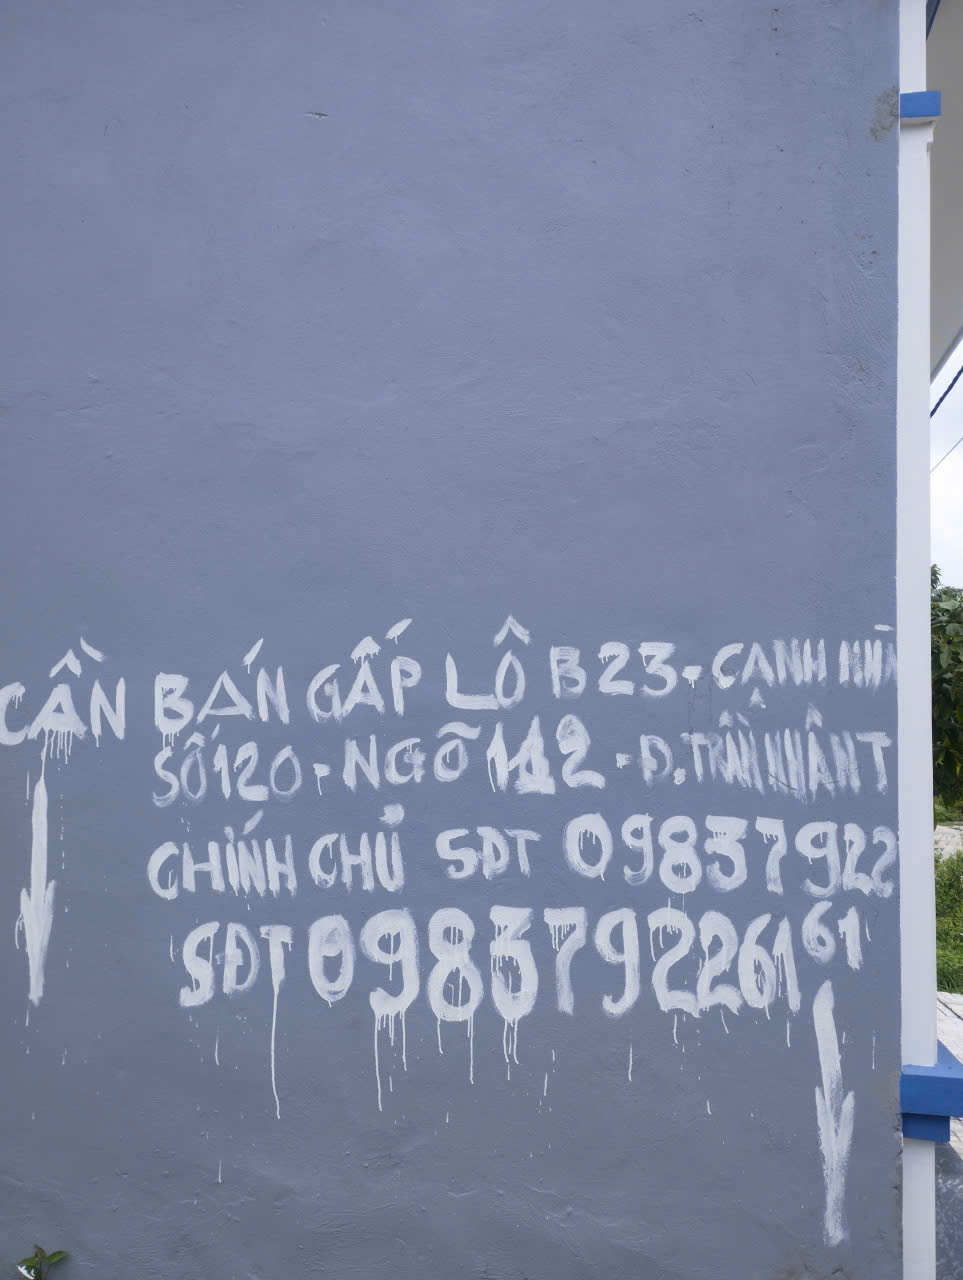 CẦN BÁN GẤP LÔ B23-CẠNH NHÀ
SỐ 120-NGÕ 112-Đ.TRẦN NHÂN T
CHÍNH CHỦ SĐT 09837922
61
SĐT 0983792261